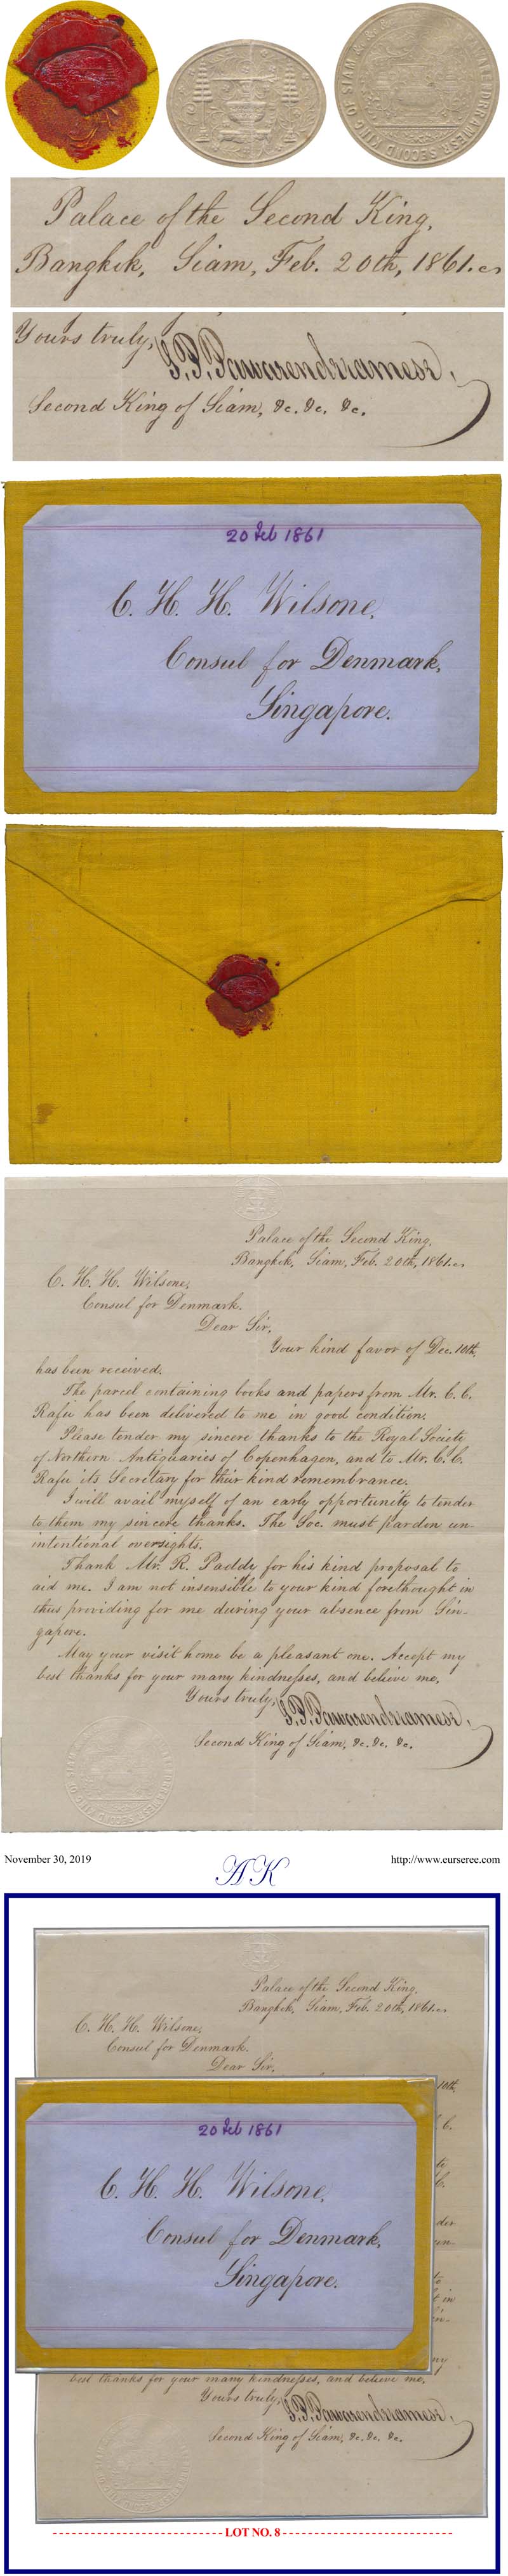 OF SIAM &. &. &.
SECOND KING OF SIAM
Palace of the Second King,
Bangkok, Siam, Feb. 20th, 1861.
Yours truly,
S.P.Pawarendrramesr,
Second King of Siam, &c. &c. &c.
20 Feb 1861
C. H. H. Wilsone,
Consul for Denmark,
Singapore.
Palace of the Second King,
Bangkok, Siam, Feb. 20th, 1861.
C. H. H. Wilsone,
Consul for Denmark.
Dear Sir,
Your kind favor of Dec. 10th,
has been received.
The parcel containing books and papers from Mr. C. C.
Rafu has been delivered to me in good condition.
Please tender my sincere thanks to the Royal Society
of Northern Antiquaries of Copenhagen, and to Mr. C. C.
Rafu its Secretary for their kind remembrance.
I will avail myself of an early opportunity to tender
to them my sincere thanks. The Soc. must pardon un-
intentional oversights.
Thank Mr. R. Paddy for his kind proposal to
aid me. I am not insensible to your kind forethought in
thus providing for me during your absence from Sin-
gapore.
May your visit home be a pleasant one. Accept my
best thanks for your many kindnesses, and believe me,
Yours truly,
S.P.Pawarendrramesr,
Second King of Siam, &c. &c. &c.
November 30, 2019
AK
http://www.eurseree.com
Palace of the Second King,
Bangkok, Siam, Feb. 20th, 1861.
C. H. H. Wilsone,
Consul for Denmark.
Dear Sir,
10th,
20 Feb 1861
C. H. H. Wilsone,
Consul for Denmark,
Singapore.
best thanks for your many kindnesses, and believe me,
Yours truly,
S.P.Pawarendrramesr,
Second King of Siam, &c. &c. &c.
LOT NO. 8